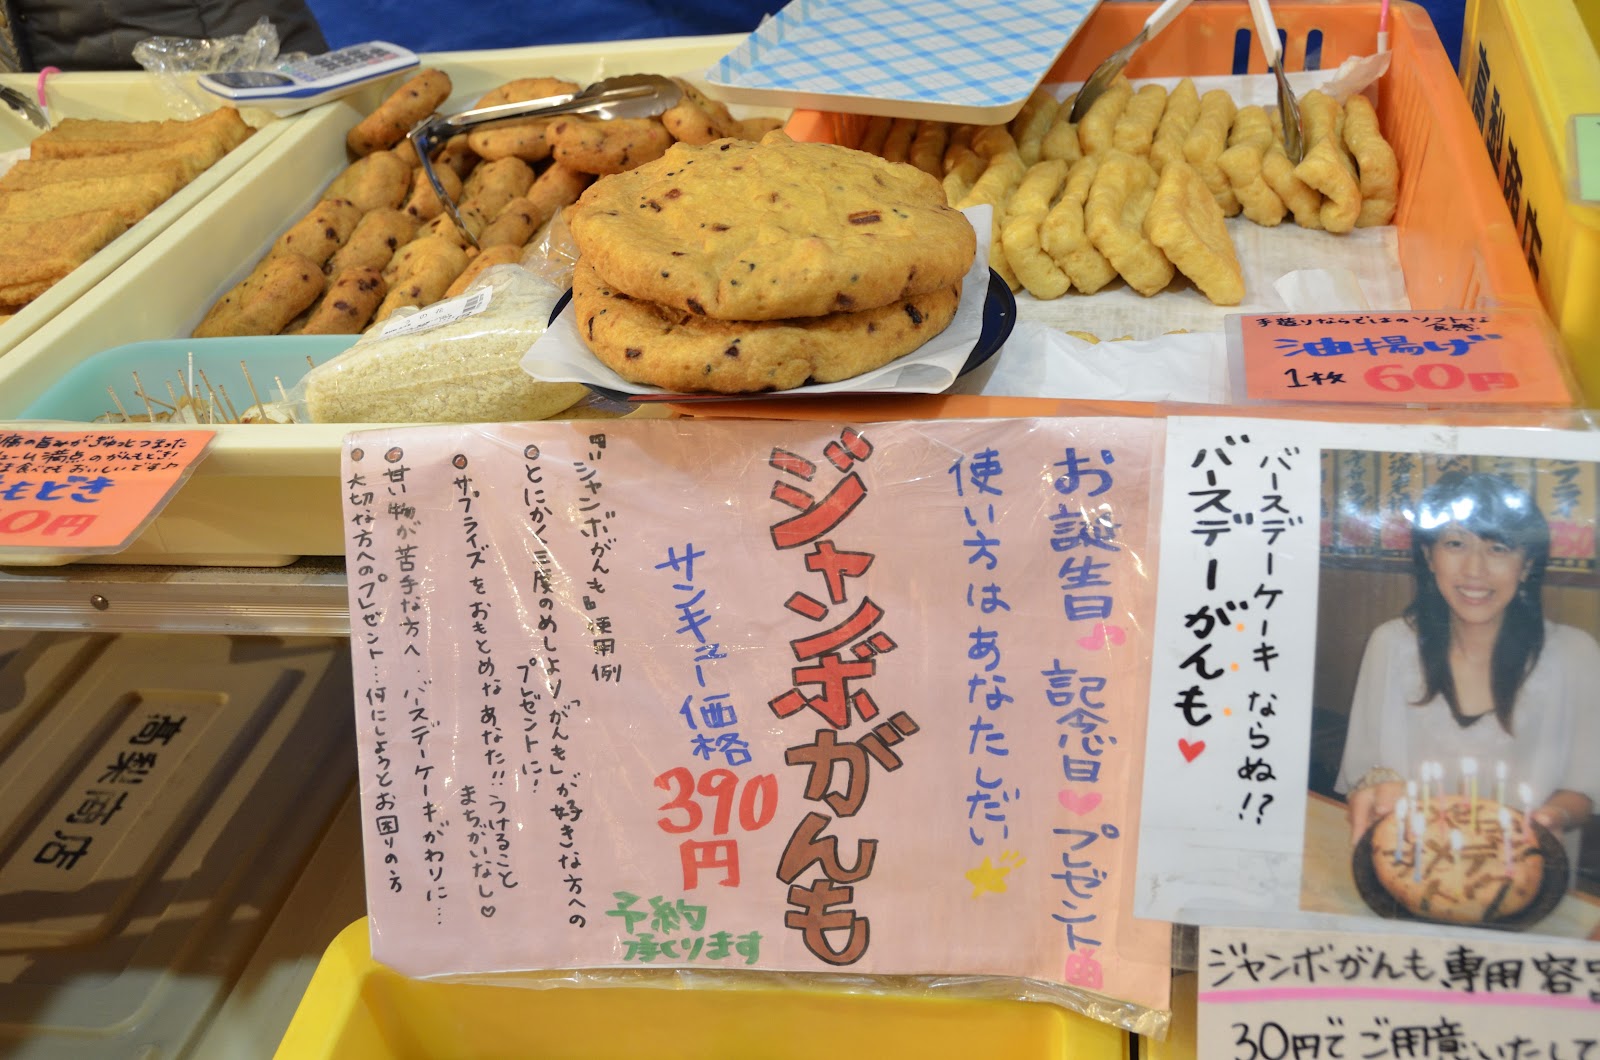 お誕生日♪ 記念日♡ プレゼント
使い方はあなたしだい
ジャンボがんも
サンキュー価格
390円
予約
承くります
『ジャンボがんも』使用例
●とにかく三度のめしより「がんも」が好きな方への
プレゼントに!
●サプライズをおもとめなあなた!!うけること
まちがいなし♡
●甘い物が苦手な方へ…バースデーケーキがわりに…
●大切な方へのプレゼント…何にしようとお困りの方
バースデーケーキならぬ!?
バースデーがんも♥
ジャンボがんも専用容
30円でご用意いたして
手造りならではのソフトな
食感
油揚げ
1枚 60円
の旨みがぎゅっとつまった
ーム満点のがんもどき!
食べてもおいしいです♪
もどき
0円
高梨商店
高梨商店